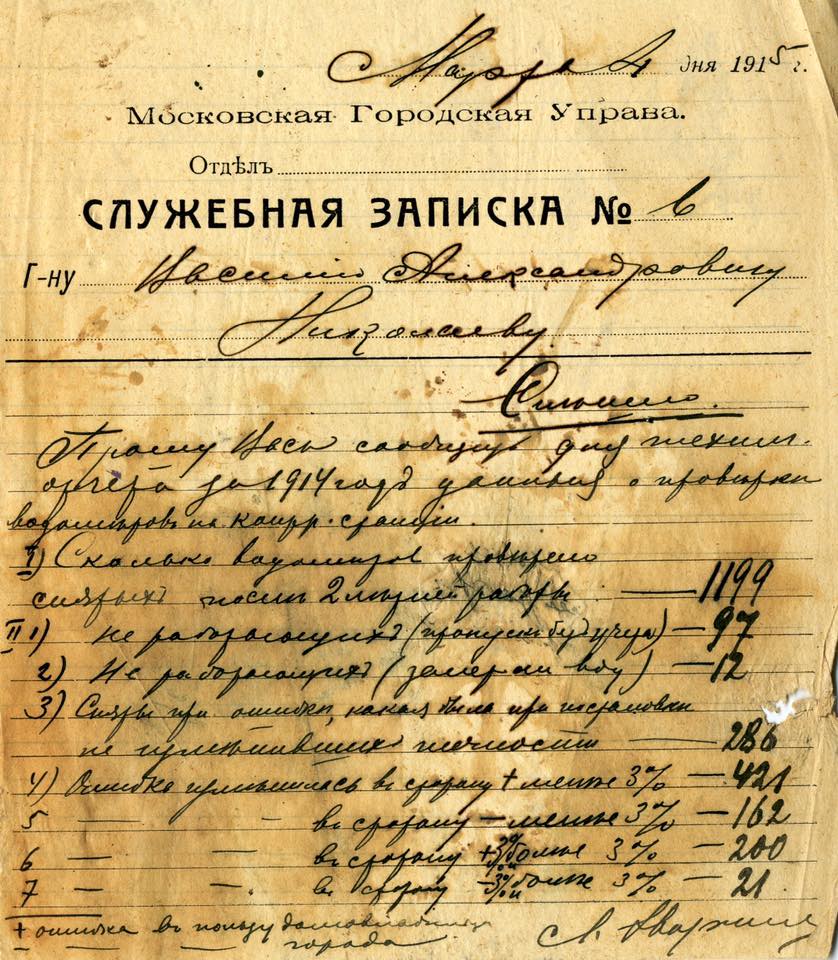 Марта 4 дня 1915 г.
Московская Городская Управа.
Отдѣлъ
СЛУЖЕБНАЯ ЗАПИСКА № 6
Г-ну Василію Александровичу
Николаеву.
Спѣшно.
Прошу Васъ сообщить для технич.
отчета за 1914 годъ данныя о провѣрки
водомѣровъ на контр. станціи.
I) Сколько водомѣров провѣрено
снятыхъ послѣ 2 лѣтней работы — 1199
II 1) Не работающихъ (пропуск без учета) — 97
2) Не работающихъ (замерзли воду) — 12
3) Сняты при ошибки, какая была при постановки
не измѣнивших точности — 286
4) Ошибка измѣнилась въ сторону + менѣе 3% — 421
5 — — въ сторону — менѣе 3% — 162
6 — — въ сторону + 3% болѣе 3% — 200
7 — — въ сторону - 3% болѣе 3% — 21.
+ ошибка въ пользу домовладѣльца
— — города